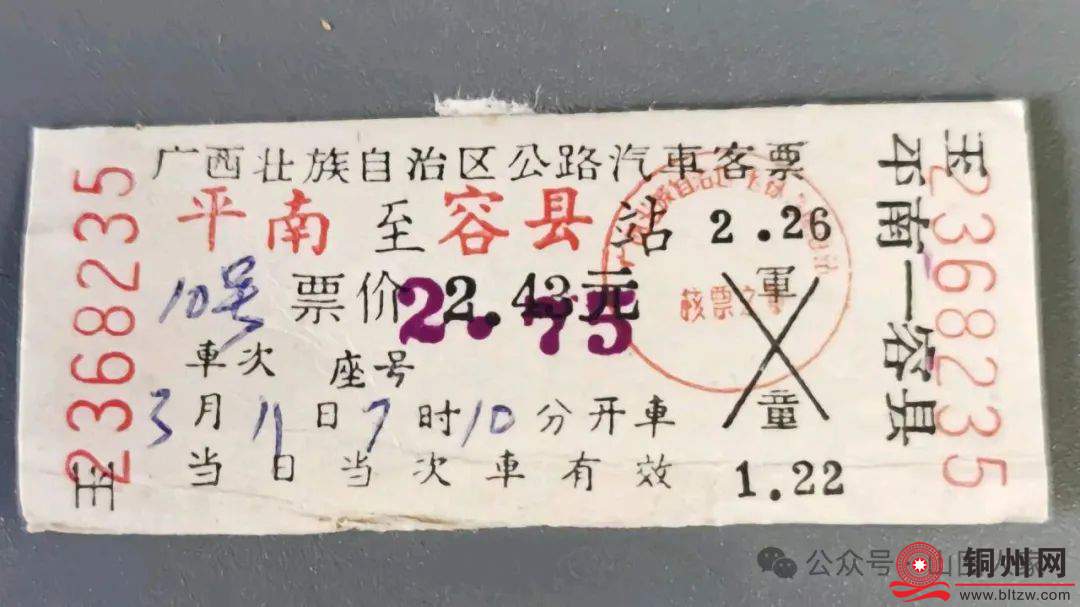 广西壮族自治区公路汽車客票
平南至容县站 2.26
10号 票价 2.43元 軍
2.75
核票之章
車次 座号
童
3月11日7时10分开車
当日当次車有效 1.22
玉 2368235
玉 2368235
平南—容县
公众号
铜州网
www.bltzw.com